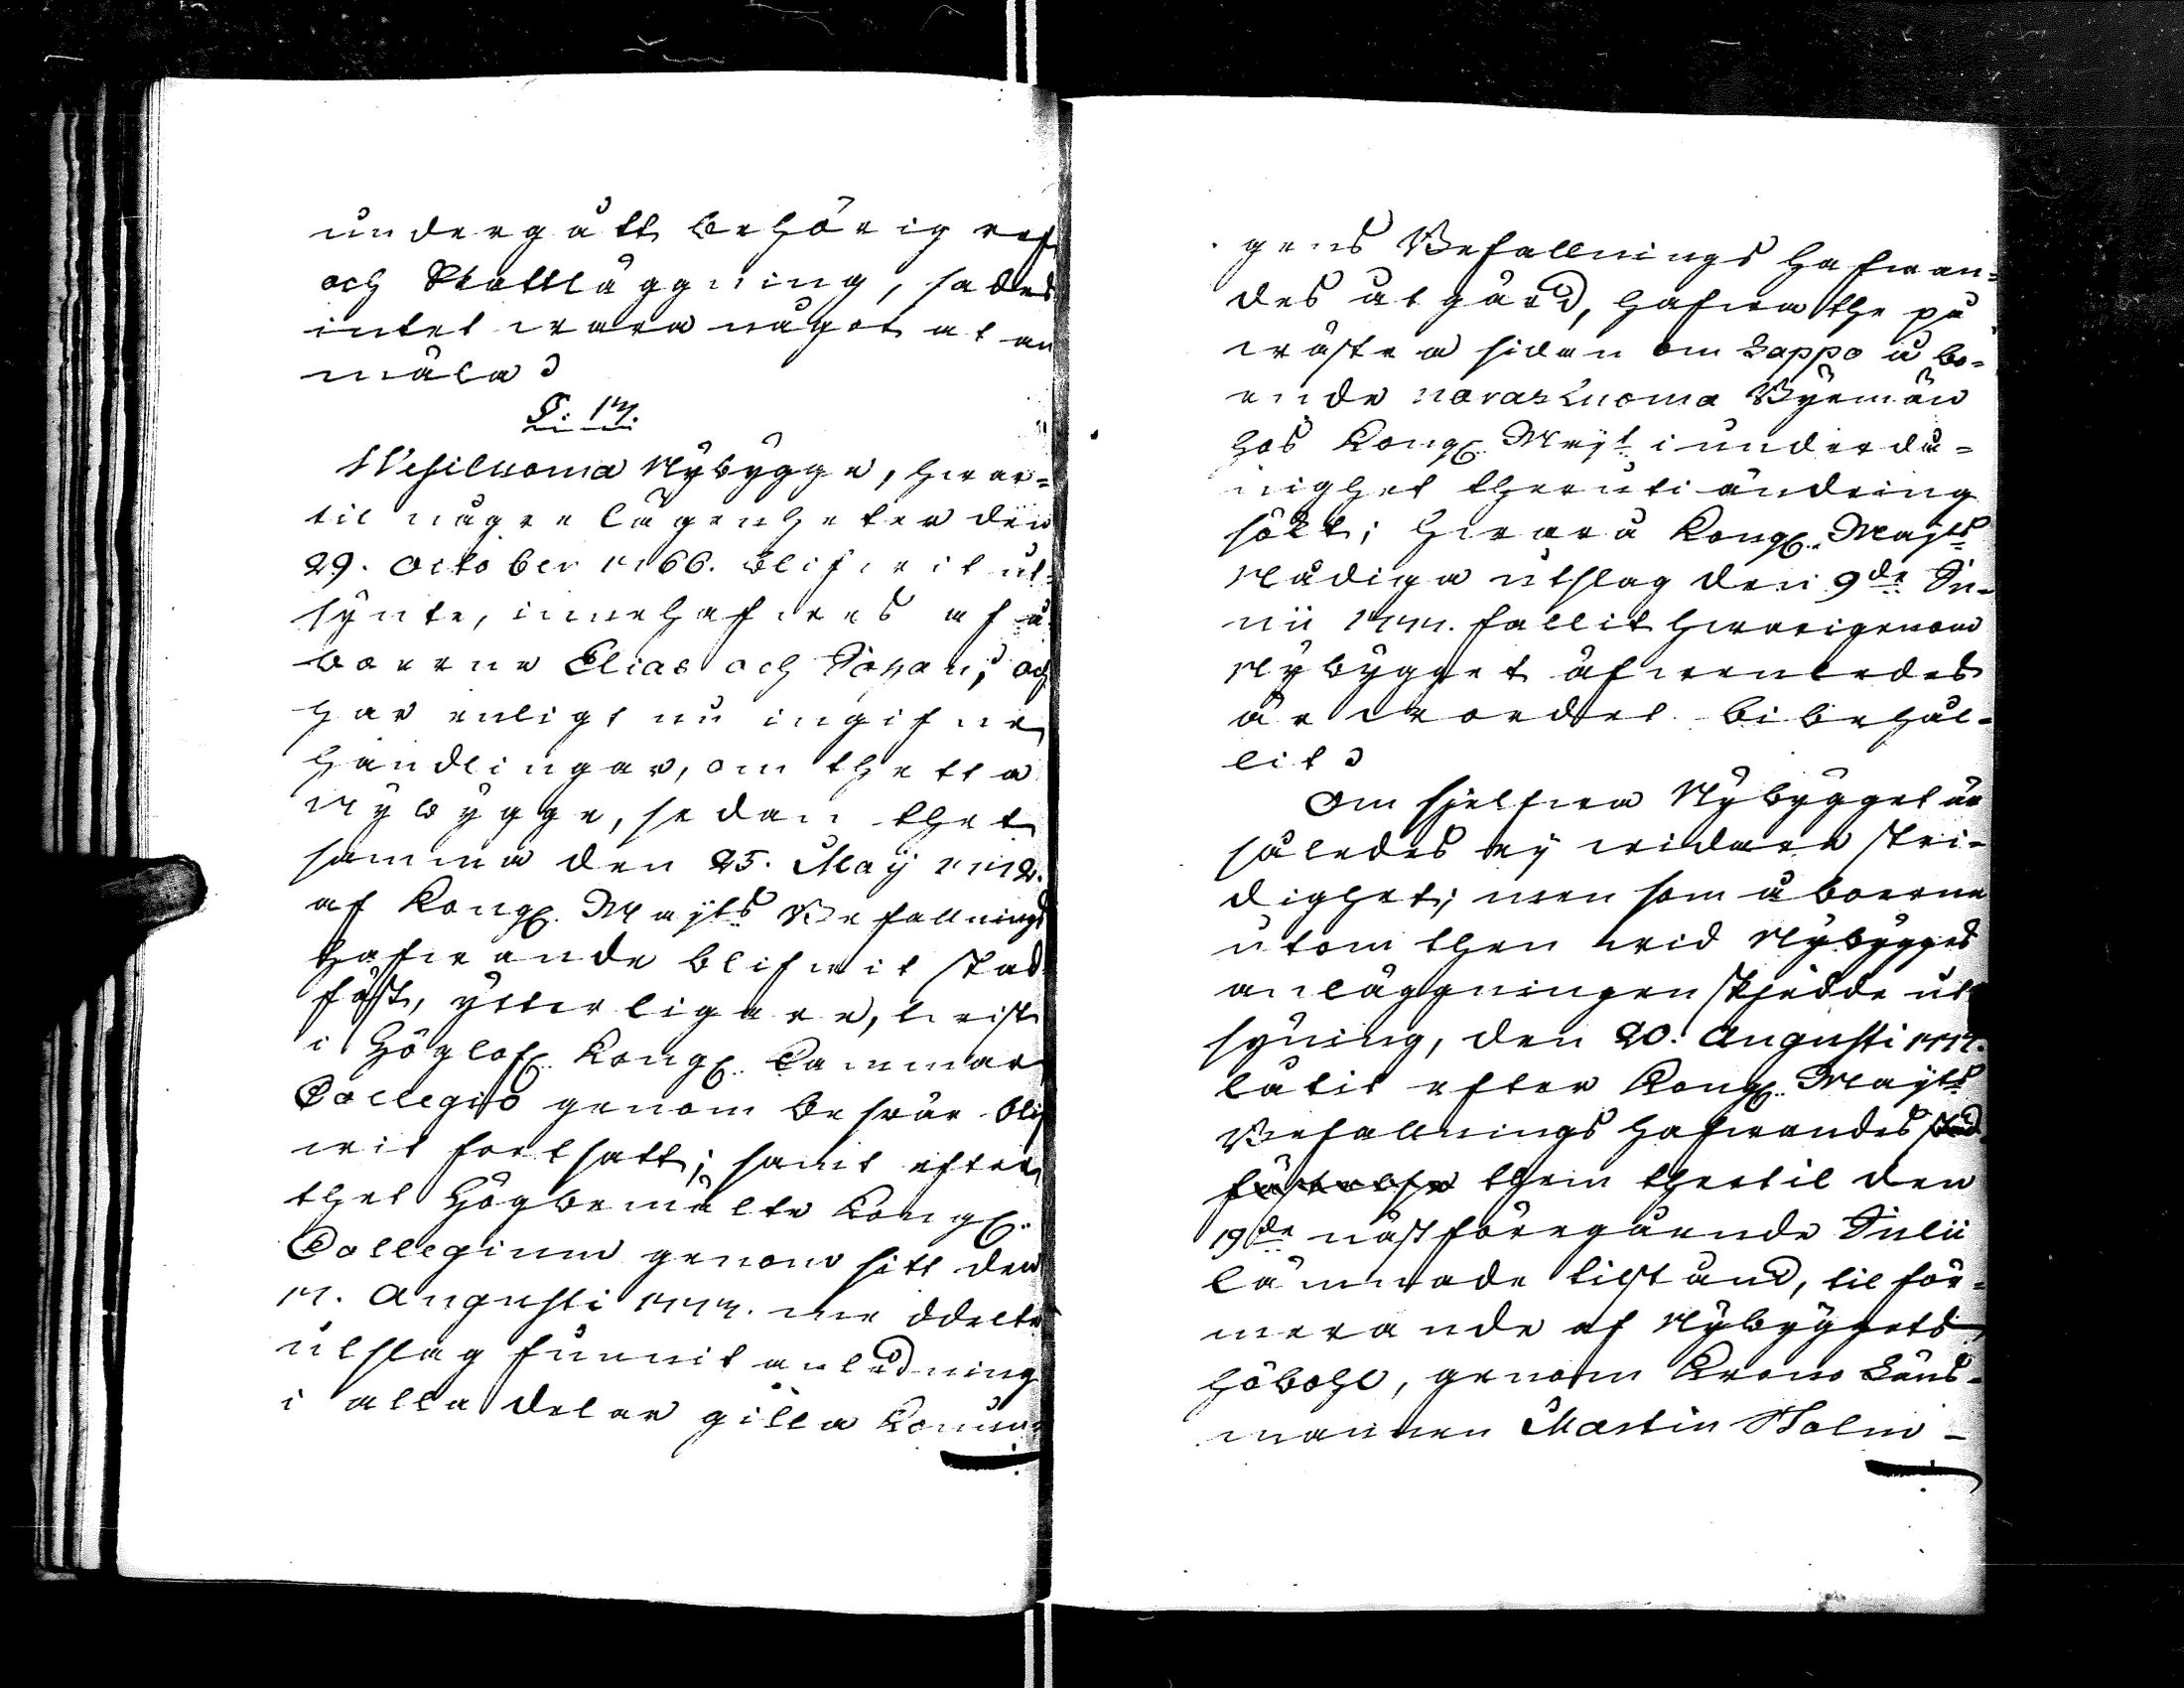 undergått behörig ref,
och Skattläggning, sades
intet wara något at an
mäla.
§. 17.
Wesiluoma Nybygge, hwar=
til någre lägenheter den
29. October 1766. Blifwit ut=
synte, innehafwes af å
boerne Elias och Johan; och
har enligt nu ingifne
handlingar, om thetta
Nybygge, sedan thet
samma den 25. Maÿ 1772.
af Kongl. Mayts Befallnings
hafwande blifwit stad
fäst, ytterligare, twist
i Höglofl. Kongl. Cammar
Collegio genom beswär blif
wit fortsatt; samt efter
thet Högbemälte Kongl.
Collegium genom sitt den
17. Augusti 1774. meddelte
utslag funnit anledning
i alla delar gilla Konun=
gens Befallnings hafwan=
des åtgärd, hafwa the på
wästra sidan om Lappo å bo=
ende Narasluoma Byemän
hos Kongl. Mayt i underdå=
nighet theruti ändring
sökt; hwarå Kongl. Mayts
Nådiga utslag den 9de Ju=
nii 1777. fallit hwarigenom
Nybygget äfwenledes
är wordet bibehål=
lit.
Om sjelfwa Nybygget är
således ey widare stri=
dighet; men som åboerne
utom then wid Nybygges
anläggningen skjedde ut
syning, den 20. Augusti 1777.
låtit efter Kongl. Mayts
Befallnings hafwandes stad
fästelse them thertil den
19de nästföregående Julii
lämnade tilstånd, til för=
merande af Nybyggets
höbohl, genom Krono Läns=
mannen Martin Holm=